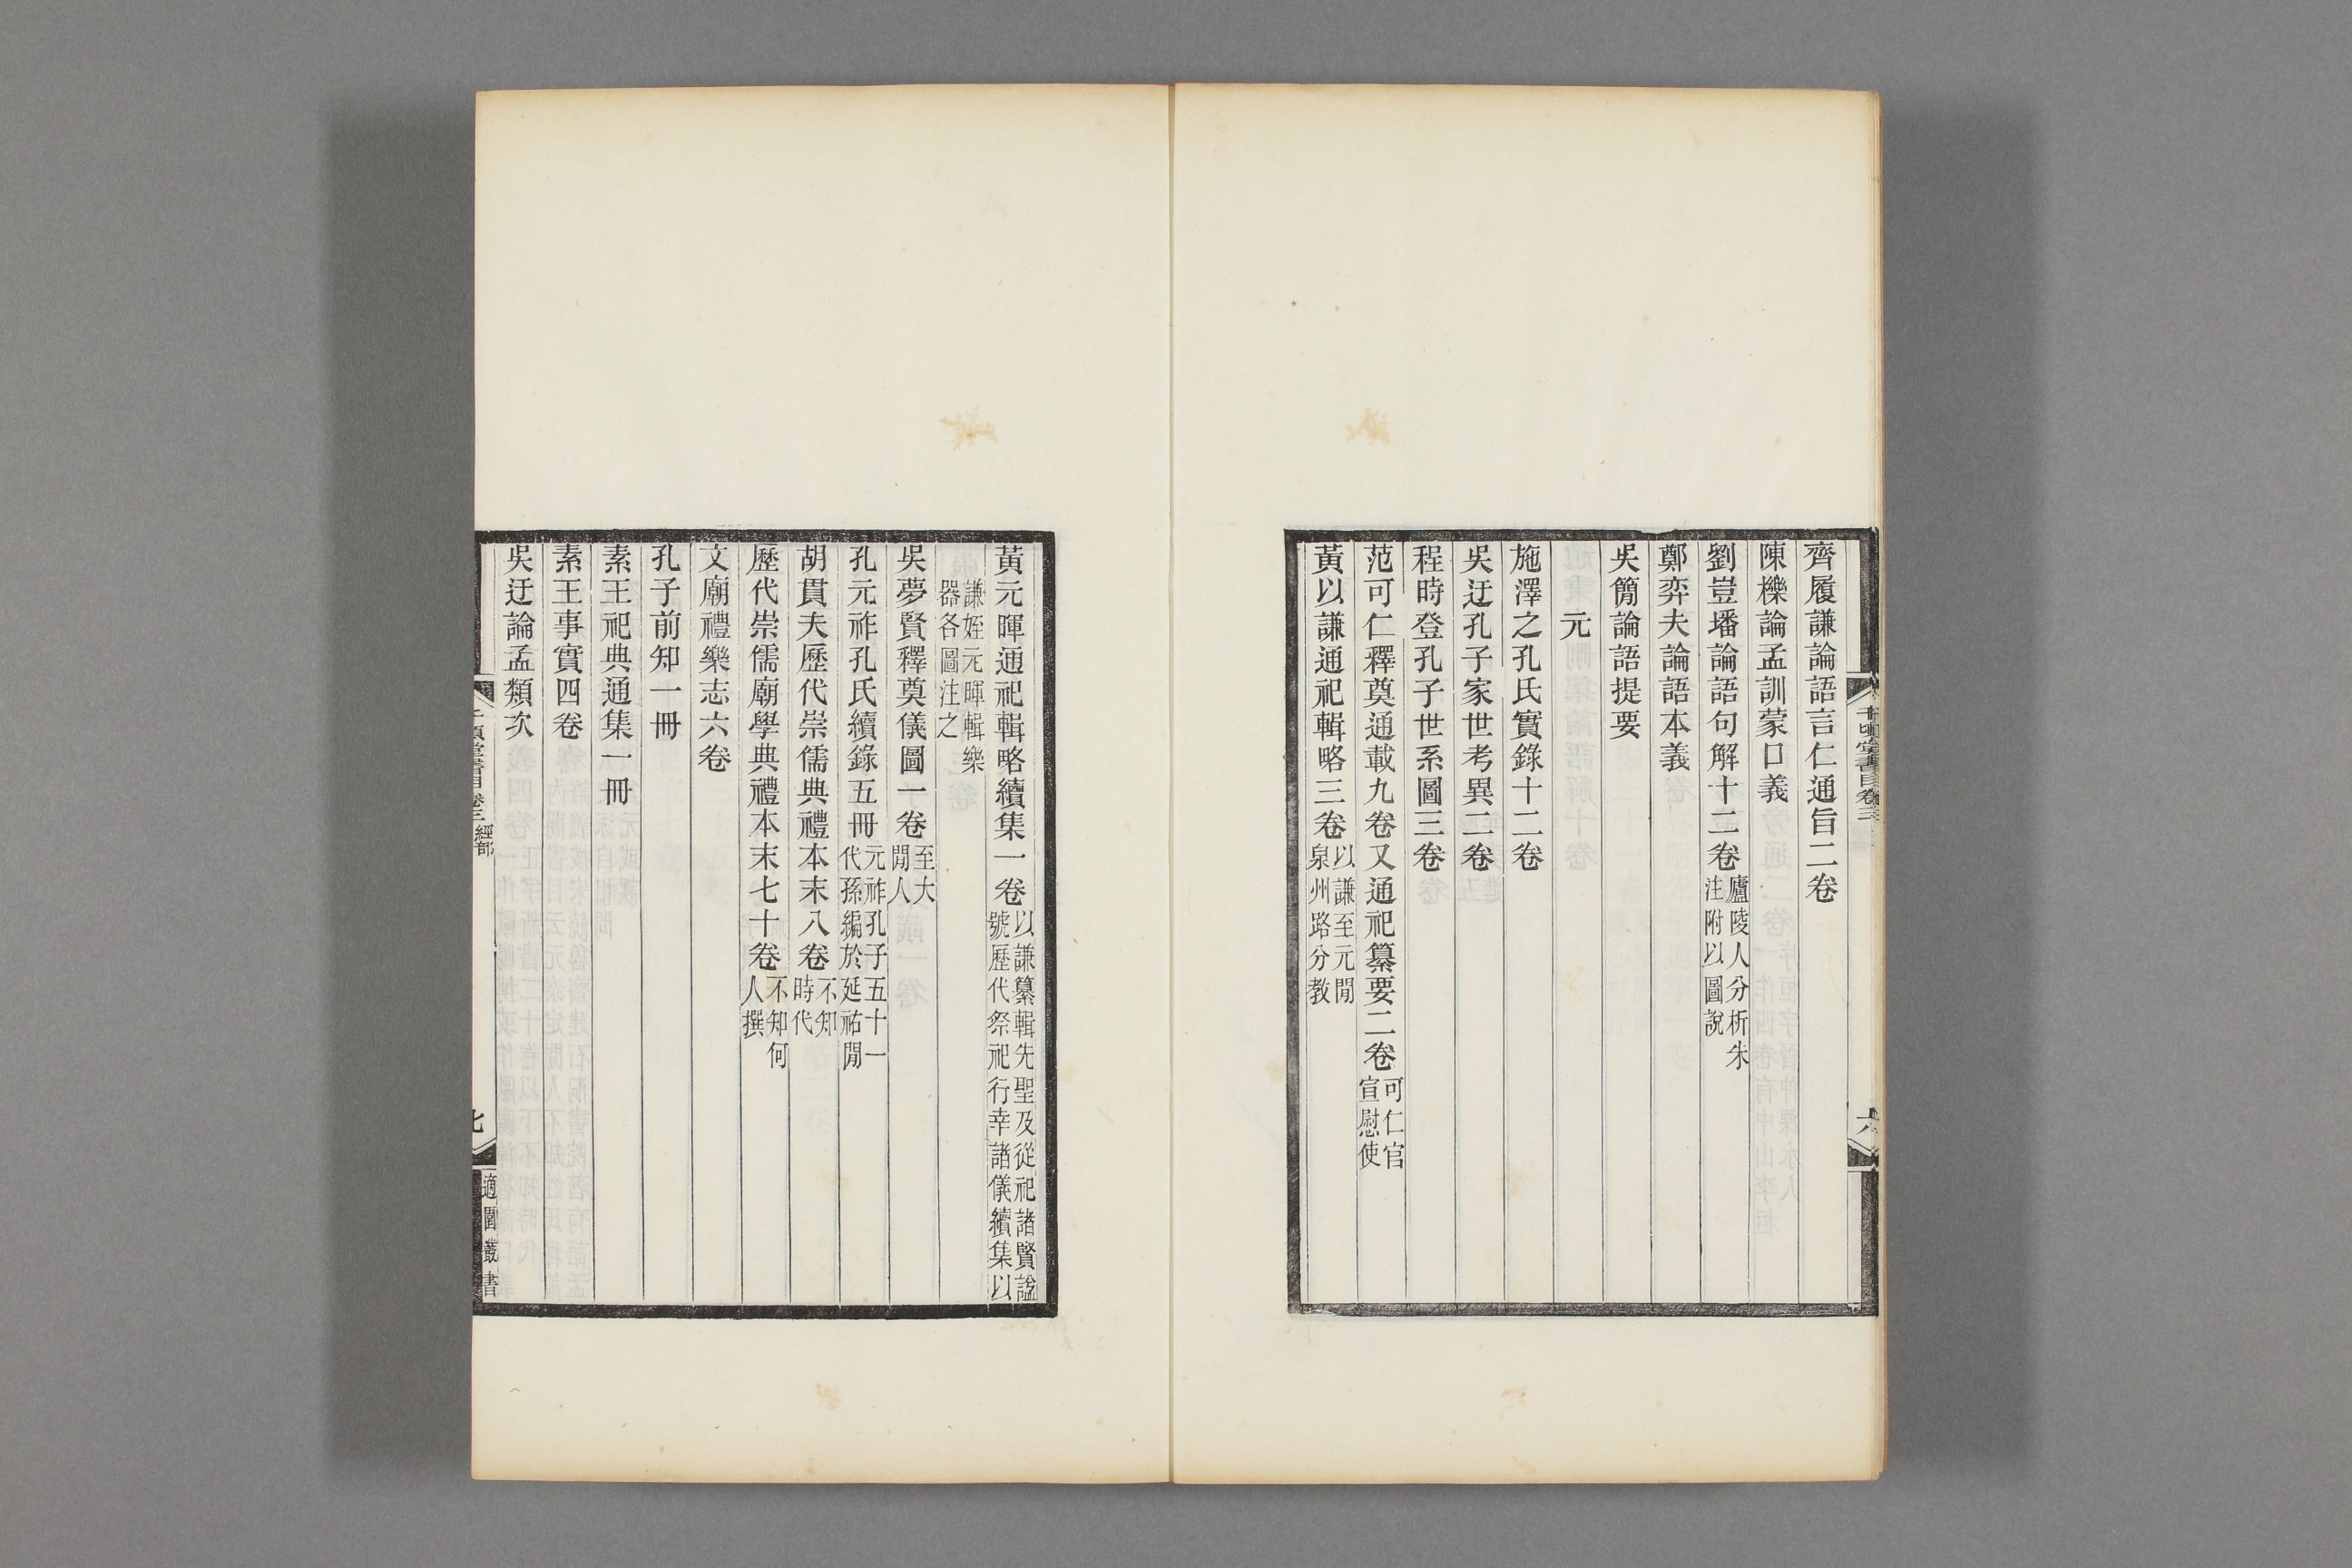 齊履謙論語言仁通旨二卷
陳櫟論孟訓蒙口義
劉豈蟠論語句解十二卷廬陵人分析朱注附以圖說
鄭弈夫論語本義
吳簡論語提要
元
施澤之孔氏實錄十二卷
吳迂孔子家世考異二卷
程時登孔子世系圖三卷
范可仁釋奠通載九卷又通祀纂要二卷可仁官宣慰使
黃以謙通祀輯略三卷以謙至元閒泉州路分教
千頃堂書目卷三
黃元暉通祀輯略續集一卷以謙纂輯先聖及從祀諸賢謚號歷代祭祀行幸諸儀續集以
謙姪元暉輯樂器各圖注之
吳夢賢釋奠儀圖一卷至大閒人
孔元祚孔氏續錄五冊元祚孔子五十一代孫編於延祐閒
胡貫夫歷代崇儒典禮本末八卷不知時代
歷代崇儒廟學典禮本末七十卷不知何人撰
文廟禮樂志六卷
孔子前知一冊
素王祀典通集一冊
素王事實四卷
吳迂論孟類次
千頃堂書目卷三 經部
適園叢書